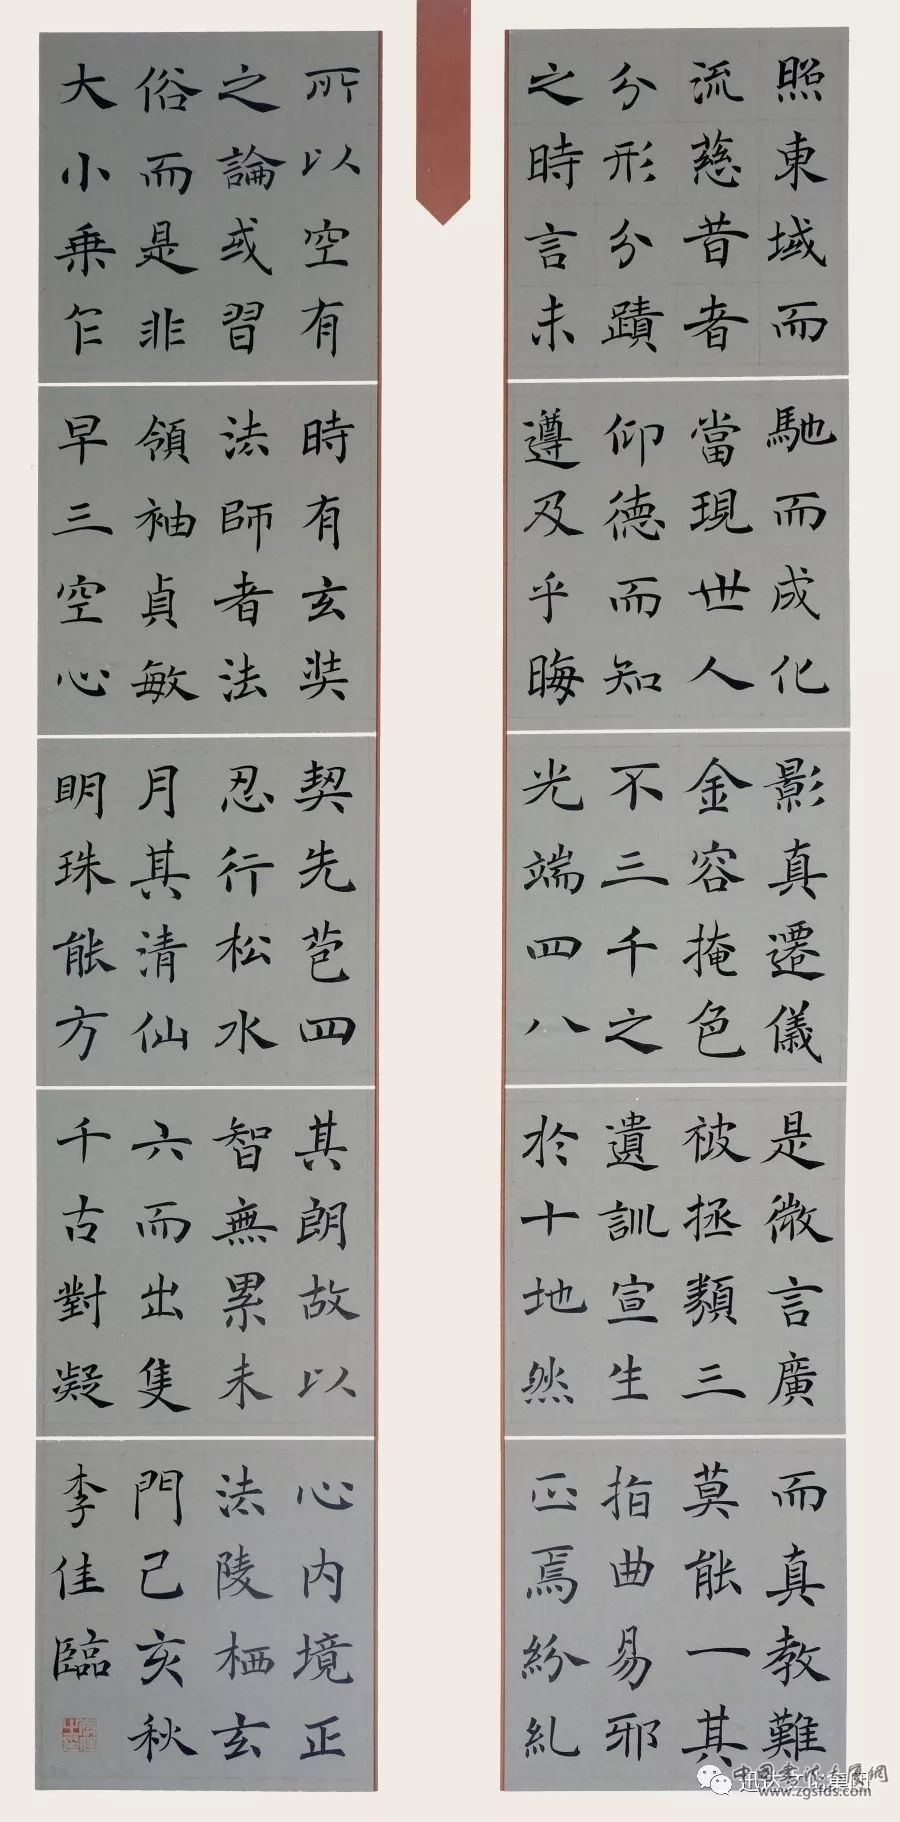 照東域而
流慈昔者
分形分蹟
之時言未
馳而成化
當現世人
仰德而知
遵及乎晦
影真遷儀
金容掩色
不三千之
光端四八
是微言廣
被拯類三
遺訓宣生
於十地然
而真教難
莫能一其
指曲易邪
正焉紛糺
所以空有
之論或習
俗而是非
大小乗乍
時有玄奘
法師者法
領袖貞敏
早三空心
契先苞四
忍行松水
月其清仙
明珠能方
其朗故以
智無累未
六而出隻
千古對凝
心内境正
法陵栖玄
門己亥秋
李佳臨
www.zgsfds.com